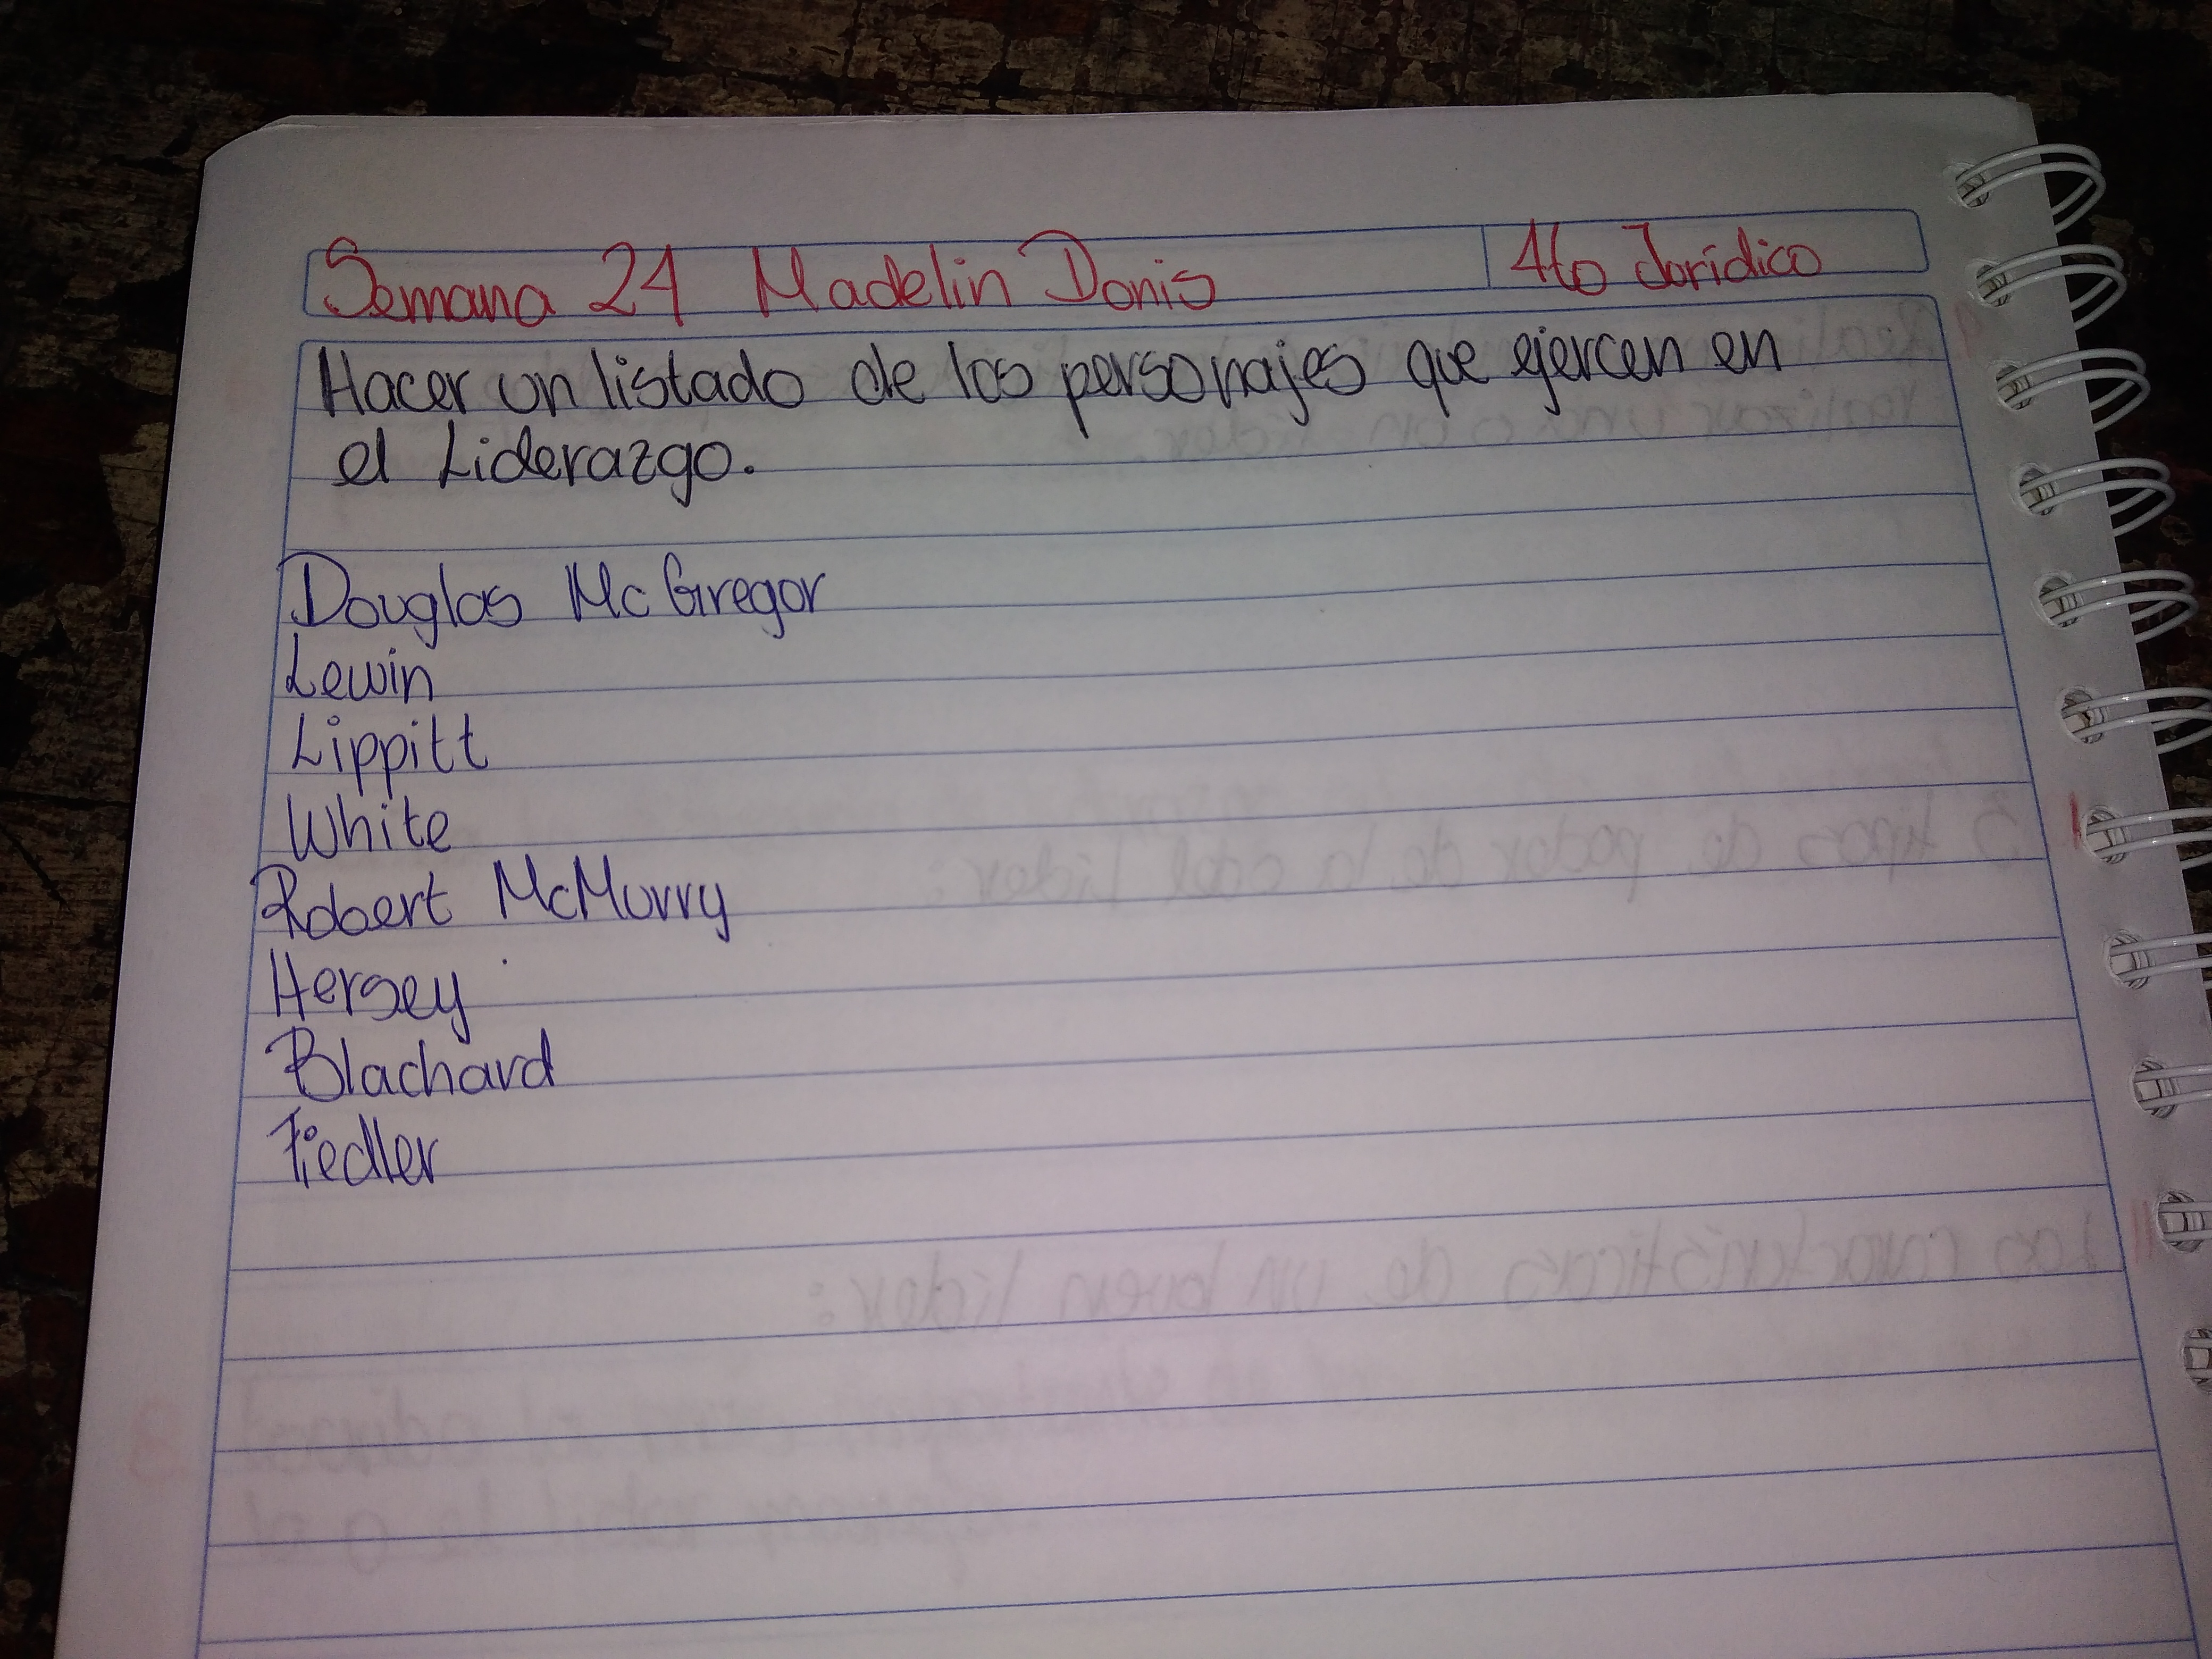 Semana 24 Madelin Donis 4to Jurídico
Hacer un listado de los personajes que ejercen en
el Liderazgo.
Douglas McGregor
Lewin
Lippitt
White
Robert McMurry
Hersey
Blachard
Fiedler